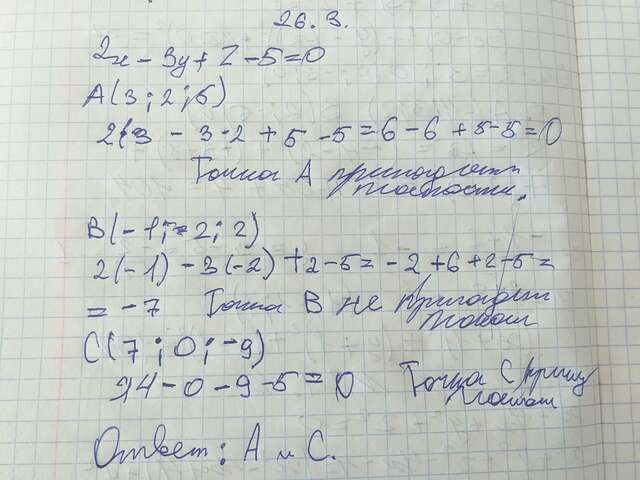 26.3.
2x - 3y + z - 5 = 0
A(3; 2; 5)
2·3 - 3·2 + 5 - 5 = 6 - 6 + 5 - 5 = 0
Точка A принадлежит
плоскости.
B(-1; -2; 2)
2(-1) - 3(-2) + 2 - 5 = -2 + 6 + 2 - 5 =
= -7 Точка B не
C(7; 0; -9)
14 - 0 - 9 - 5 = 0 Точка C
Ответ: A и C.